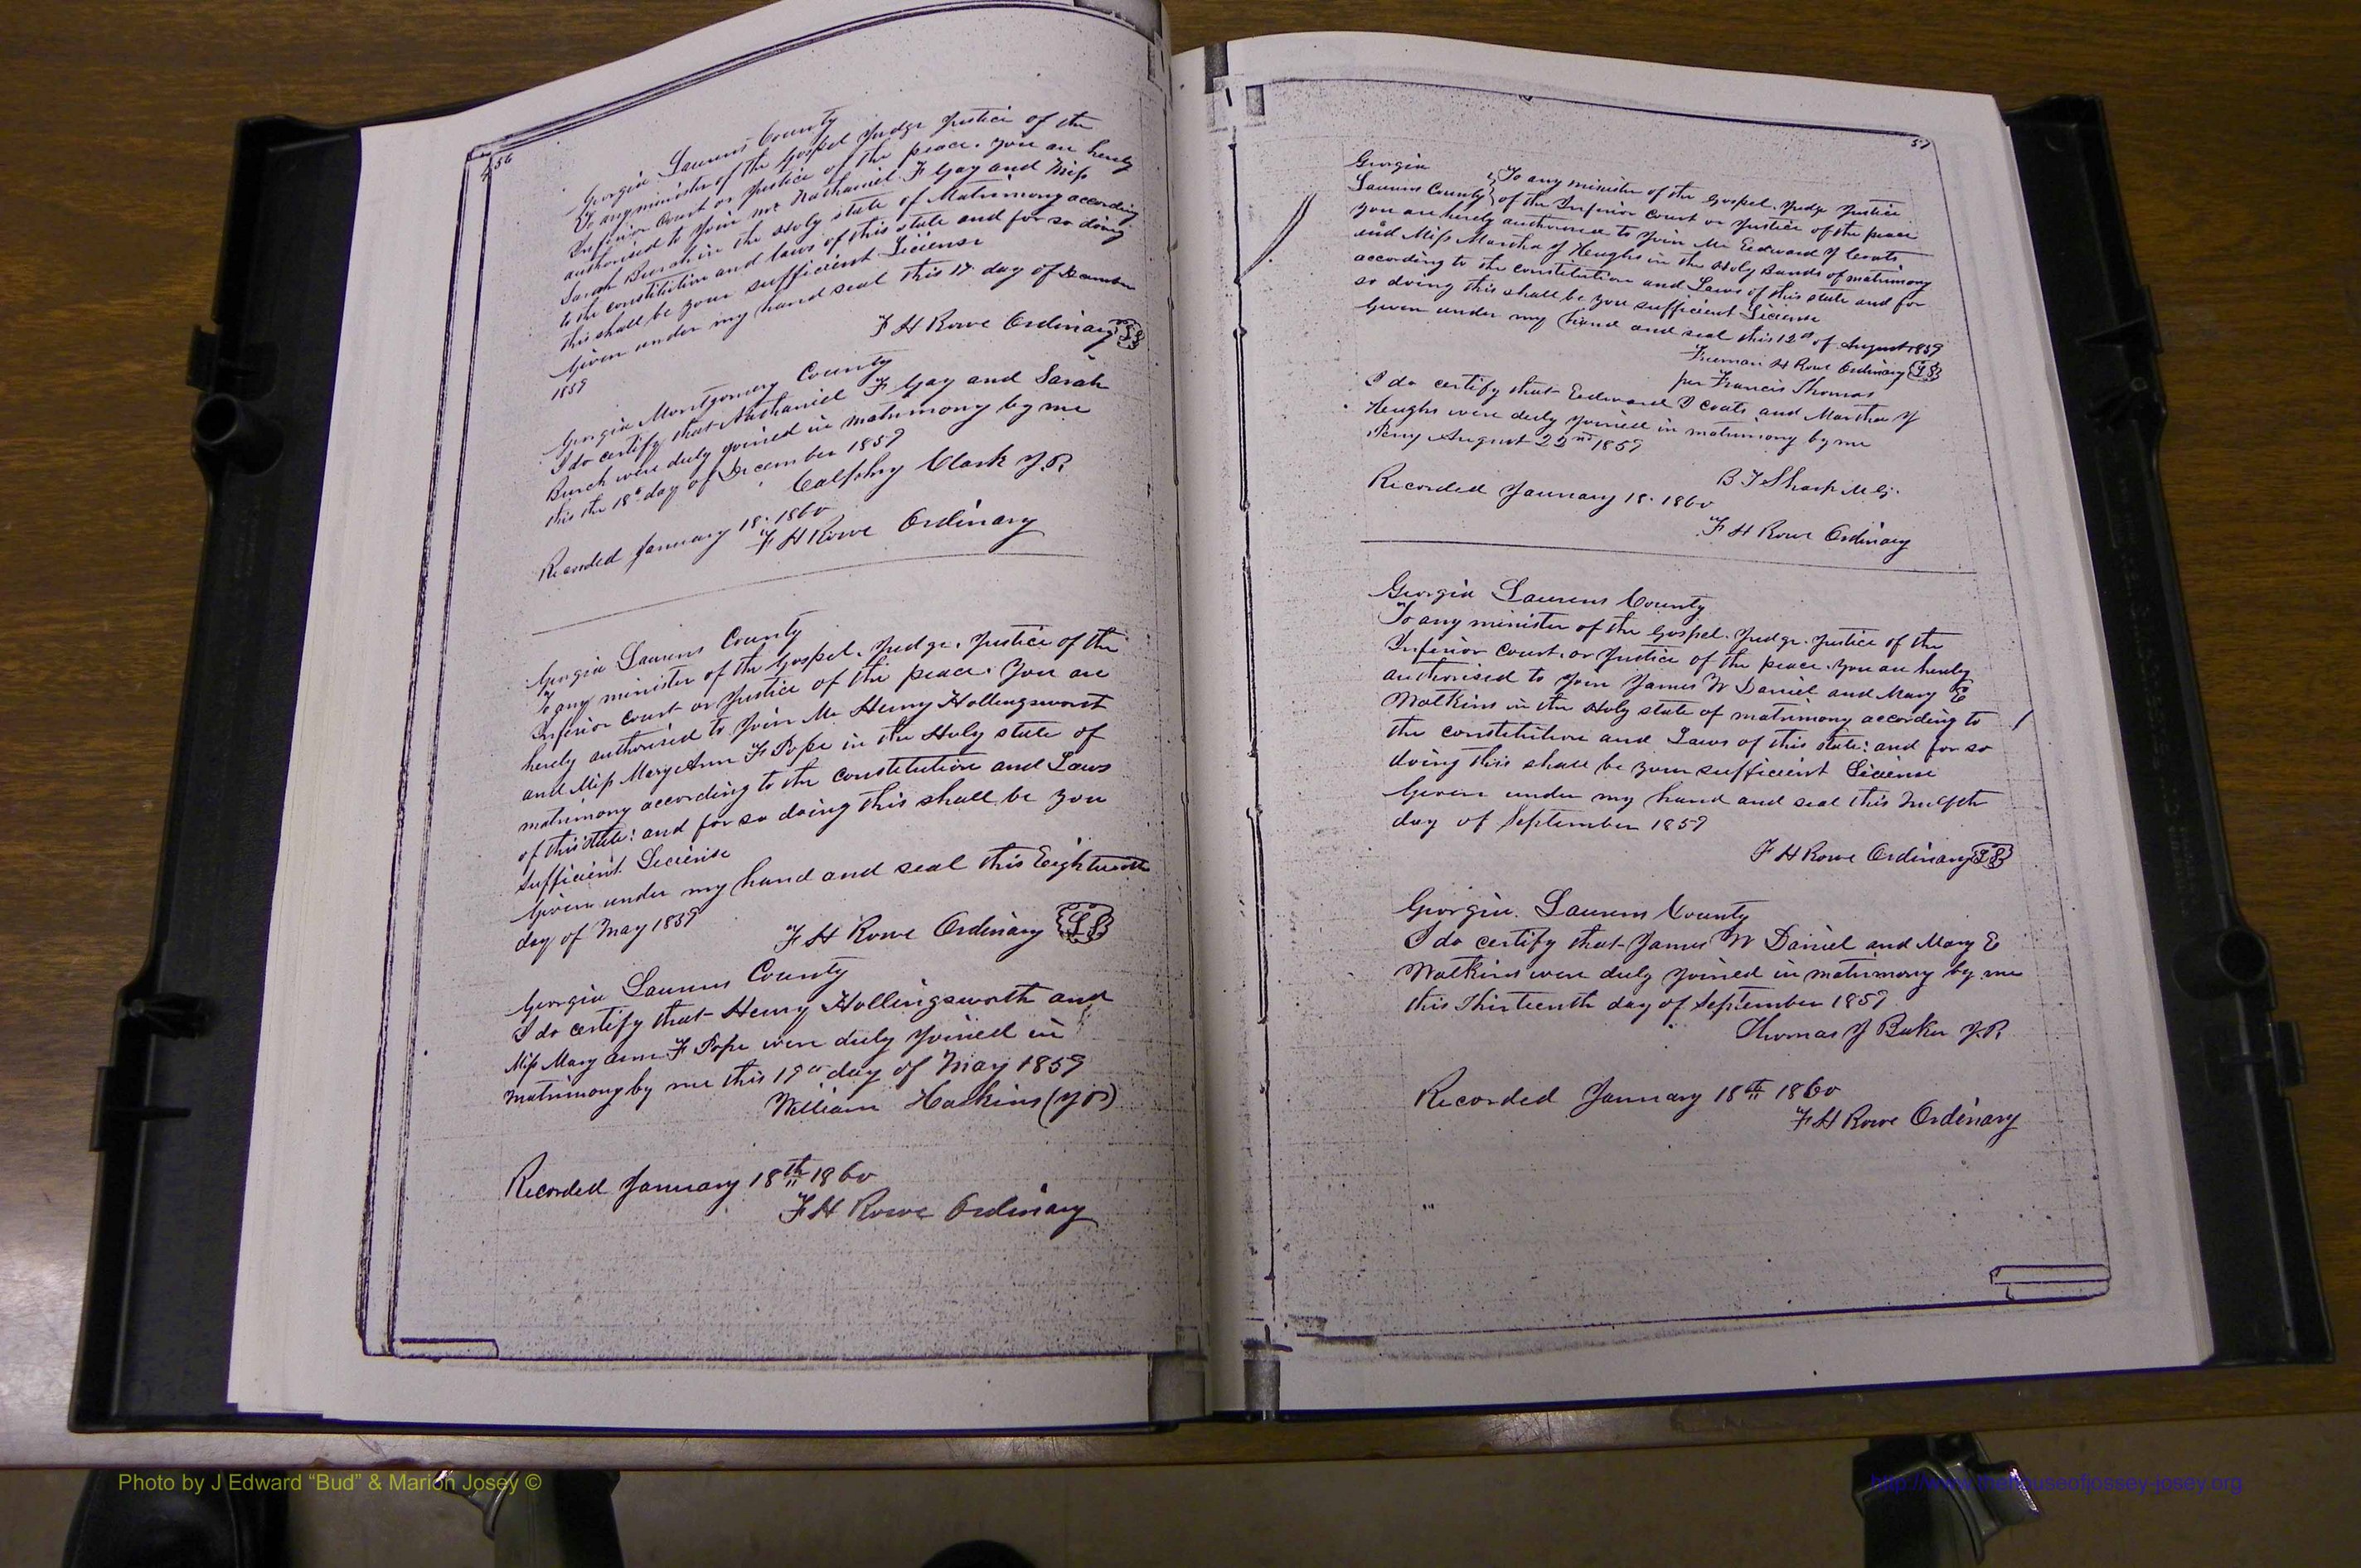 56
Georgia Laurens County
To any minister of the Gospel Judge Justice of the
Inferior Court or Justice of the peace. you are hereby
authorised to Join Mr Nathaniel F Gay and Miss
Sarah Burch in the Holy state of Matrimony according
to the constitution and laws of this state and for so doing
this shall be your sufficient License
Given under my hand seal this 17 day of December
1859
F H Rowe Ordinary LS
Georgia Montgomery County
I do certify that Nathaniel F Gay and Sarah
Burch were duly Joined in matrimony by me
this the 18th day of December 1859
Clark J.P.
Recorded January 18. 1860
F H Rowe Ordinary
Georgia Laurens County
To any minister of the Gospel. Judge. Justice of the
Inferior Court or Justice of the peace. You are
hereby authorised to Join Mr Henry Hollingsworst
and Miss Mary Ann F Pope in the Holy state of
matrimony according to the constitution and Laws
of this state: and for so doing this shall be you
sufficient License
Given under my hand and seal this Eighteenth
day of May 1859
F H Rowe Ordinary LS
Georgia Laurens County
I do certify that Henry Hollingsworth and
Miss Mary Ann F Pope were duly Joined in
Matrimony by me this 19th day of May 1859
William Haskins (JP)
Recorded January 18th 1860
F H Rowe Ordinary
57
Georgia
Laurens County
To any minister of the Gospel. Judge Justice
of the Inferior Court or Justice of the peace
you are hereby authorised to Join Mr Eedward J Coats
and Miss Martha J Heughs in the Holy Bands of matrimony
according to the constitution and Laws of this state and for
so doing this shall be you sufficient License
Given under my hand and seal this 12th of August 1859
Freeman H Rowe Ordinary LS
per Francis Thomas
I do certify that Eedward J Coats and Martha J
Heughs were duly Joined in matrimony by me
August 22nd 1859
B J Sharp M G.
Recorded January 18. 1860
F H Rowe Ordinary
Georgia Laurens County
To any minister of the Gospel. Judge. Justice of the
Inferior Court. or Justice of the peace. you are hereby
authorised to Join James W Daniel and Mary E
Watkins in the Holy state of matrimony according to
the constitution and Laws of this state: and for so
doing this shall be your sufficient License
Given under my hand and seal this Twelfth
day of September 1859
F H Rowe Ordinary LS
Georgia. Laurens County
I do certify that James W Daniel and Mary E
Watkins were duly Joined in matrimony by me
this Thirteenth day of September 1859
Thomas J Baker J.P.
Recorded January 18th 1860
F H Rowe Ordinary
Photo by J Edward “Bud” & Marion Josey ©
http://www.thehouseofjossey-josey.org